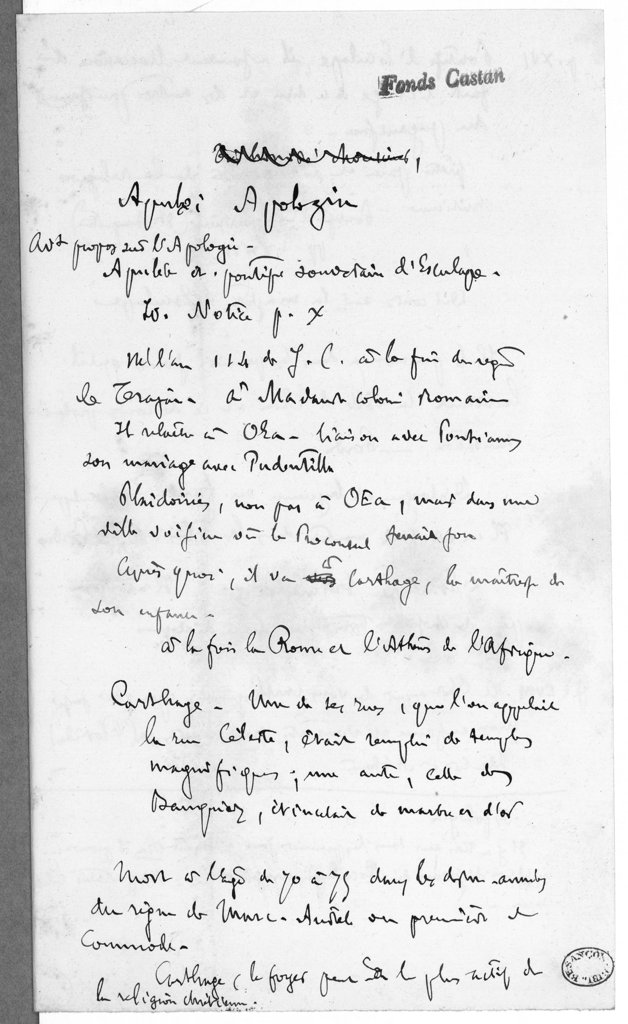 Fonds Castan
Apulei Apologia
Avt propos sur l'Apologie -
Apulée et . pontife souverain d'Esculape -
Notice p. X
Né l'an 114 de J. C. à la fin du règne
de Trajan - à Madaure colonie romaine
Il relâche à OEa - liaison avec Pontianus
son mariage avec Pudentilla
Plaidoiries, non pas à OEa, mais dans une
ville voisine où le Proconsul tenait
Après quoi, il va à Carthage, la maîtresse de
son enfance -
à la fois la Rome et l'Athènes de l'Afrique -
Carthage - Une de ses rues, que l'on appelait
la rue Céleste, était remplie de temples
magnifiques ; une autre, celle des
Banquiers, étincelait de marbre et d'or
Mort à l'âge de 70 à 75 dans les dern. années
du règne de Marc-Aurèle ou premières de
Commode -
Carthage, le foyer le plus actif de
la religion chrétienne.
BESANÇON